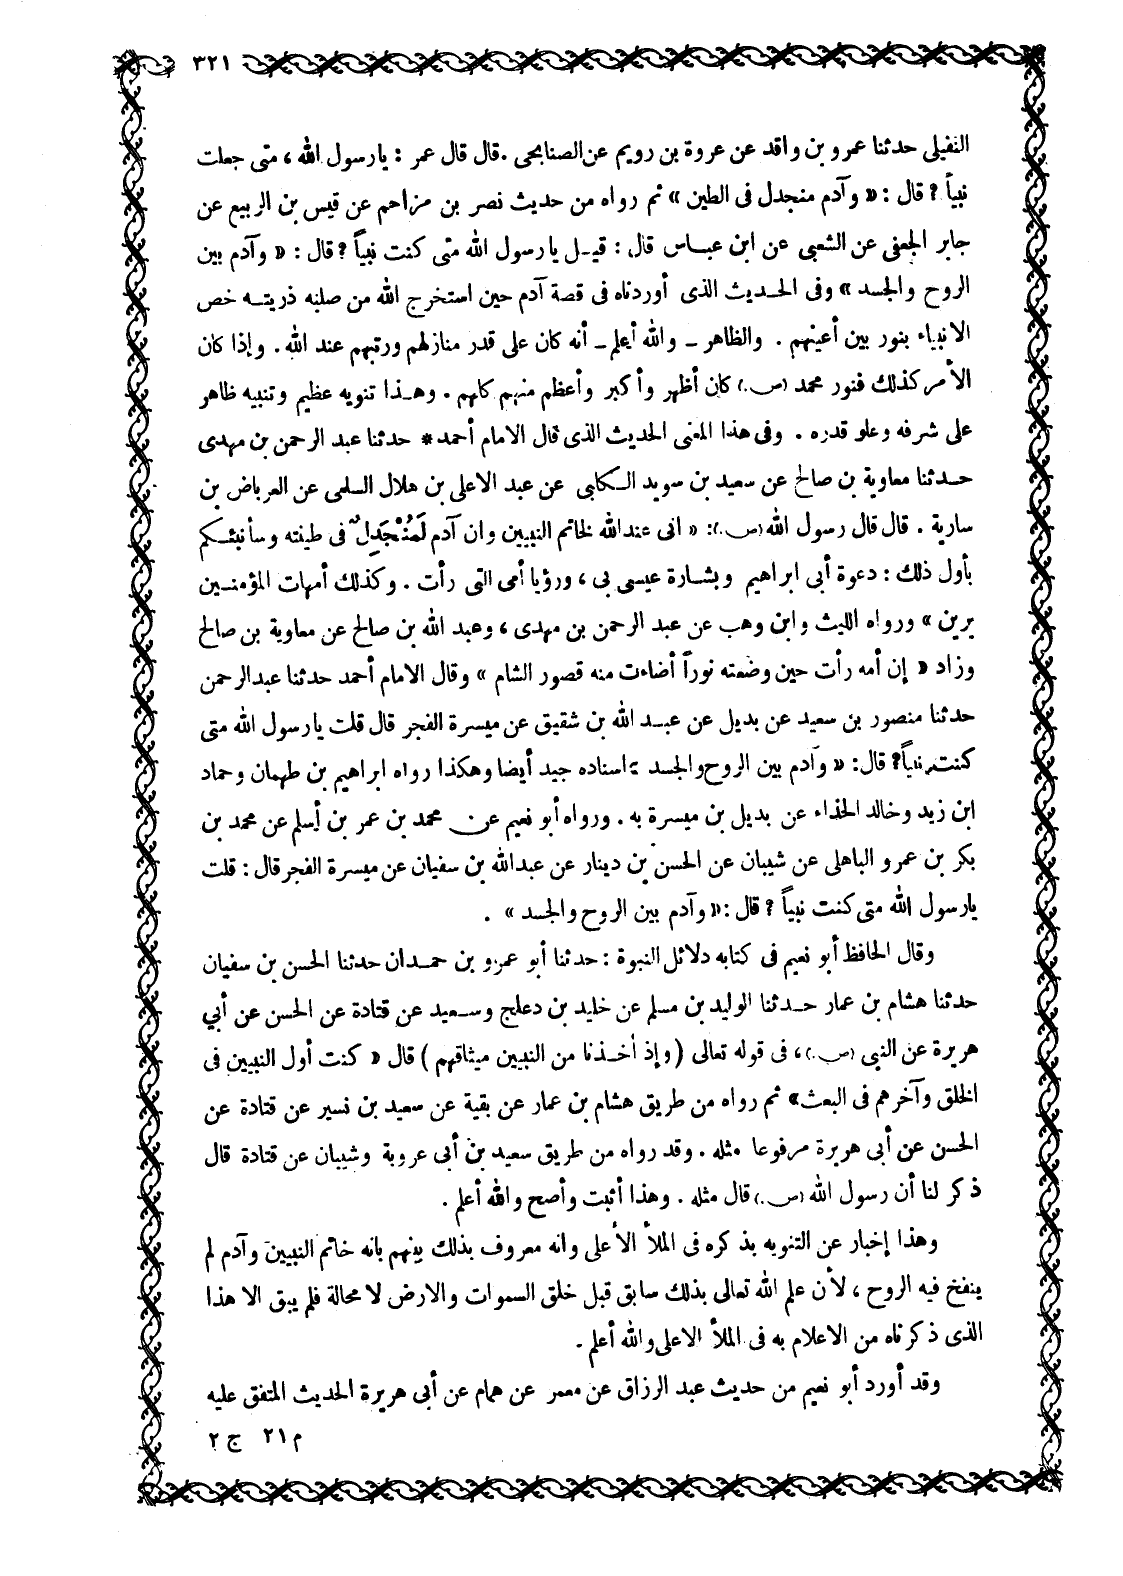 ٣٢١
النفيلى حدثنا عمرو بن واقد عن عروة بن رويم عن الصنابحى . قال قال عمر : يارسول الله ، متى جعلت
نبياً ? قال : « وآدم منجدل فى الطين » ثم رواه من حديث نصر بن مزاحم عن قيس بن الربيع عن
جابر الجعفى عن الشعبى عن ابن عباس قال : قيـل يا رسول الله متى كنت نبياً ? قال : « وآدم بين
الروح والجسد » وفى الحـديث الذى أوردناه فى قصة آدم حين استخرج الله من صلبه ذريتـه خص
الانبياء بنور بين أعينهم . والظاهر ـ والله أعلم ـ أنه كان على قدر منازلهم ورتبهم عند الله . وإذا كان
الأمر كذلك فنور محمد (ص.) كان أظهر وأكبر وأعظم منهم كلهم . وهـذا تنويه عظيم وتنبيه ظاهر
على شرفه وعلو قدره . وفى هذا المعنى الحديث الذى قال الامام أحمد * حدثنا عبد الرحمن بن مهدى
حـدثنا معاوية بن صالح عن سعيد بن سويد الـكلبى عن عبد الاعلى بن هلال السلمى عن العرباض بن
سارية . قال قال رسول الله (ص.): « انى عند الله لخاتم النبيين وان آدم لَمُنْجَدِلٌ فى طينته وسأنبئـكم
بأول ذلك : دعوة أبى ابراهيم وبشـارة عيسى بى ، ورؤيا أمى التى رأت . وكذلك أمهات المؤمنـين
يرين » ورواه الليث وابن وهب عن عبد الرحمن بن مهدى ، وعبد الله بن صالح عن معاوية بن صالح
وزاد « إن أمه رأت حين وضعته نوراً أضاءت منه قصور الشام » وقال الامام أحمد حدثنا عبدالرحمن
حدثنا منصور بن سعيد عن بديل عن عبـد الله بن شقيق عن ميسرة الفجر قال قلت يارسول الله متى
كنت نبياً? قال: « وآدم بين الروح والجسد » اسناده جيد أيضا وهكذا رواه ابراهيم بن طهمان وحماد
ابن زيد وخالد الحذاء عن بديل بن ميسرة به . ورواه أبو نعيم عن محمد بن عمر بن أسلم عن محمد بن
بكر بن عمرو الباهلى عن شيبان عن الحسن بن دينار عن عبدالله بن سفيان عن ميسرة الفجر قال : قلت
يارسول الله متى كنت نبياً ? قال : « وآدم بين الروح والجسد » .
وقال الحافظ أبو نعيم فى كتابه دلائل النبوة : حدثنا أبو عمرو بن حمـدان حدثنا الحسن بن سفيان
حدثنا هشام بن عمار حـدثنا الوليد بن مسلم عن خليد بن دعلج وسـعيد عن قتادة عن الحسن عن أبي
هريرة عن النبي (ص.) ، فى قوله تعالى ( وإذ أخـذنا من النبيين ميثاقهم ) قال « كنت أول النبيين فى
الخلق وآخرهم فى البعث» ثم رواه من طريق هشام بن عمار عن بقية عن سعيد بن نسير عن قتادة عن
الحسن عن أبى هريرة مرفوعا مثله . وقد رواه من طريق سعيد بن أبى عروبة وشيبان عن قتادة قال
ذكر لنا أن رسول الله (ص.) قال مثله . وهذا أثبت وأصح والله أعلم .
وهذا إخبار عن التنويه بذكره فى الملأ الأعلى وانه معروف بذلك بينهم بانه خاتم النبيين وآدم لم
ينفخ فيه الروح ، لأن علم الله تعالى بذلك سابق قبل خلق السموات والارض لا محالة فلم يبق الا هذا
الذى ذكرناه من الاعلام به فى الملأ الاعلى والله أعلم .
وقد أورد أبو نعيم من حديث عبد الرزاق عن معمر عن همام عن أبى هريرة الحديث المتفق عليه
م ٢١ ج ٢